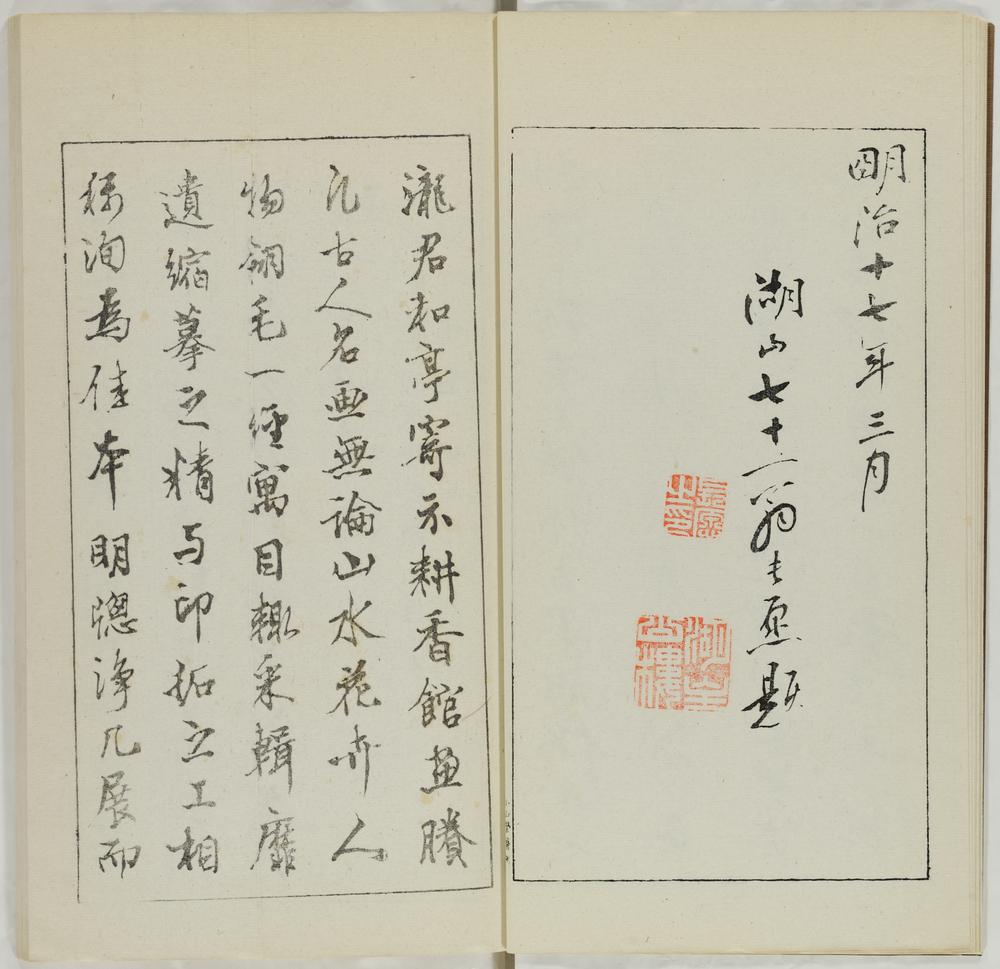 明治十七年三月
湖山七十一翁長愿題
長愿之印
瀧君和亭寄示耕香館畫賸
凡古人名画無論山水花卉人
物翎毛一經寓目輙采輯靡
遺縮摹之精与印拓之工相
称洵為佳本明牕淨几展而